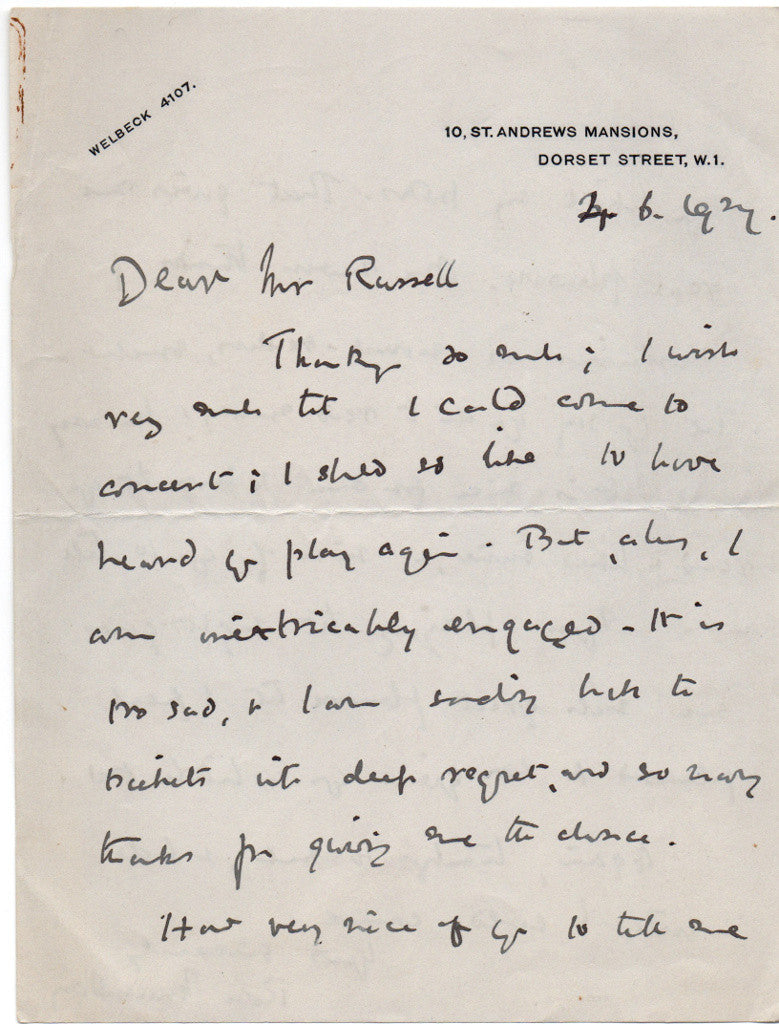 WELBECK 4107.
10, ST. ANDREWS MANSIONS,
DORSET STREET, W.1.
6. 1927.
Dear Mr Russell
Thank you so much; I wish
very much tht I could come to
concert; I shld so like to have
heard yr play again. But, alas, I
am inextricably engaged - It is
too sad, & I am sending back the
tickets with deep regret, and so many
thanks for giving me the chance.
How very nice of yr to tell me